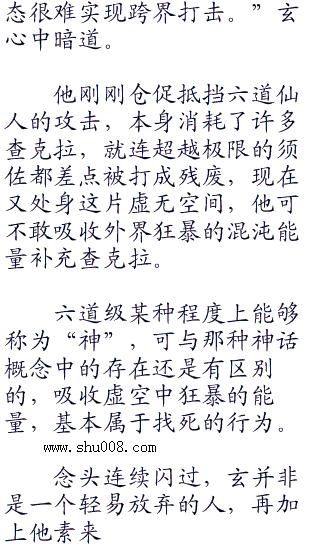 态很难实现跨界打击。”玄
心中暗道。
他刚刚仓促抵挡六道仙
人的攻击，本身消耗了许多
查克拉，就连超越极限的须
佐都差点被打成残废，现在
又处身这片虚无空间，他可
不敢吸收外界狂暴的混沌能
量补充查克拉。
六道级某种程度上能够
称为“神”，可与那种神话
概念中的存在还是有区别
的，吸收虚空中狂暴的能
量，基本属于找死的行为。
www.shu008.com
念头连续闪过，玄并非
是一个轻易放弃的人，再加
上他素来